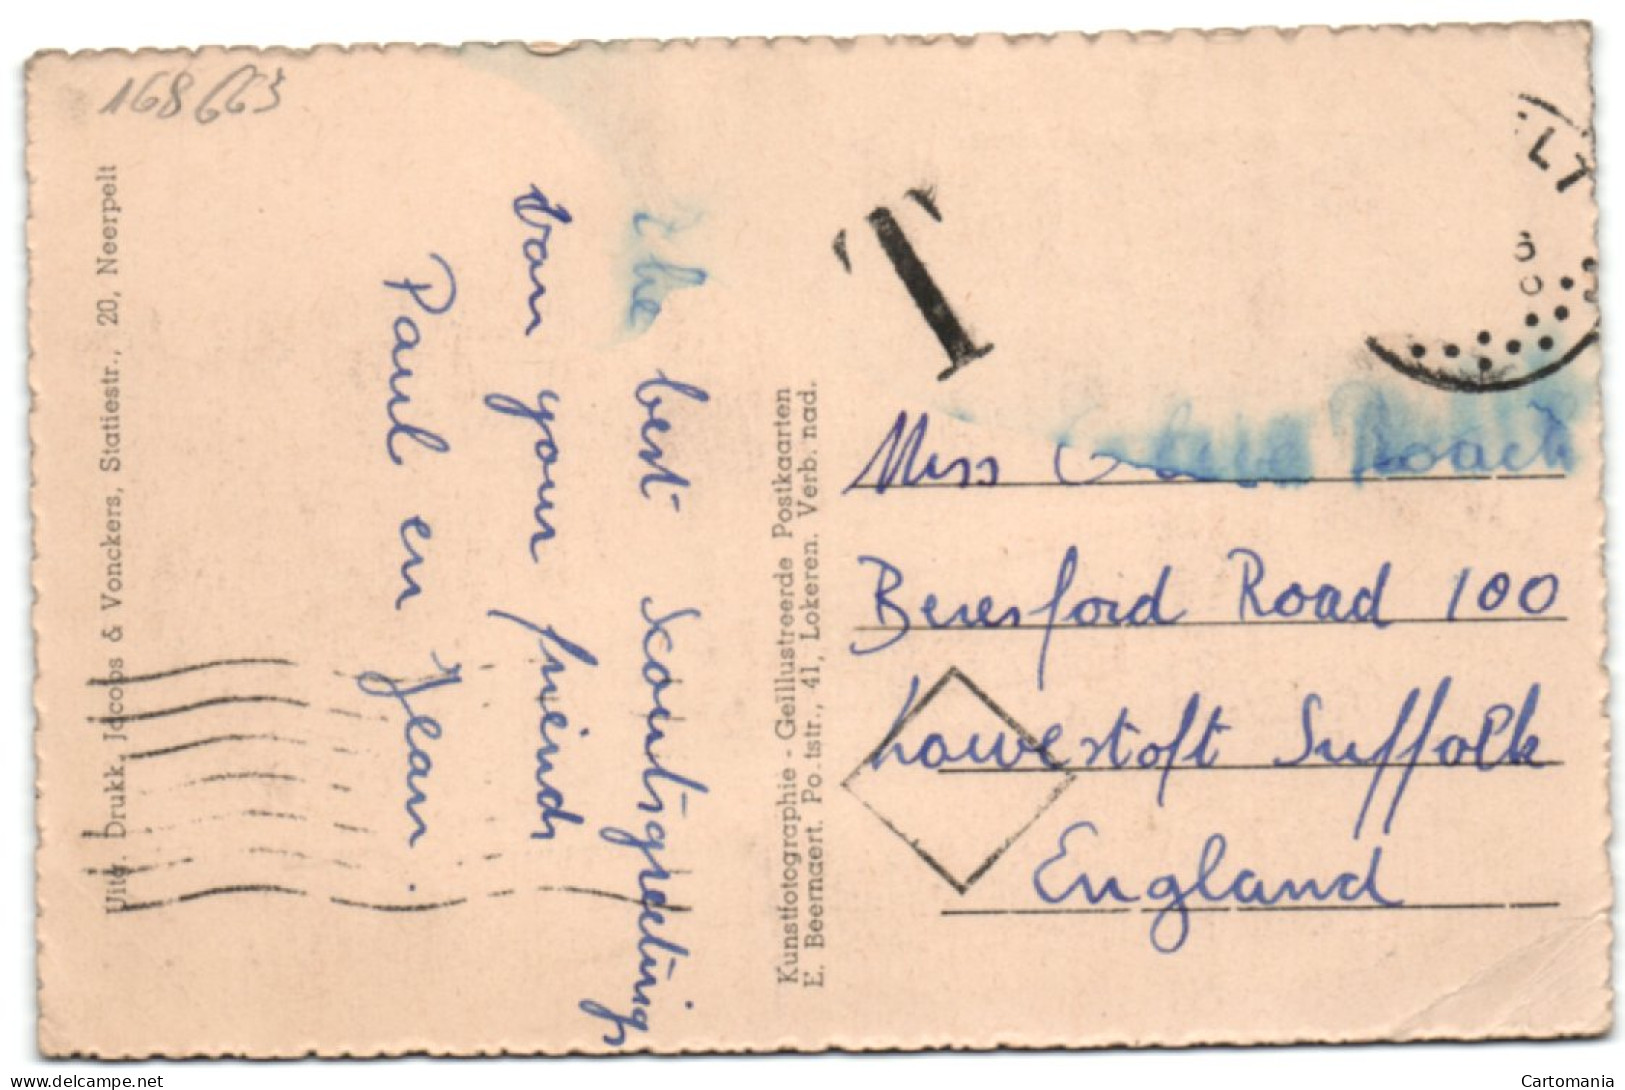 168663
Uitg. Drukk. Jacobs & Vonckers, Statiestr., 20, Neerpelt
the best Scoutsgreetings
van your friends
Paul en Jean.
Kunstfotographie - Geïllustreerde Postkaarten
E. Beernaert. Po.tstr., 41, Lokeren. Verb. nad.
T
LT
Miss Roach
Beresford Road 100
Lowestoft Suffolk
England
Cartomania